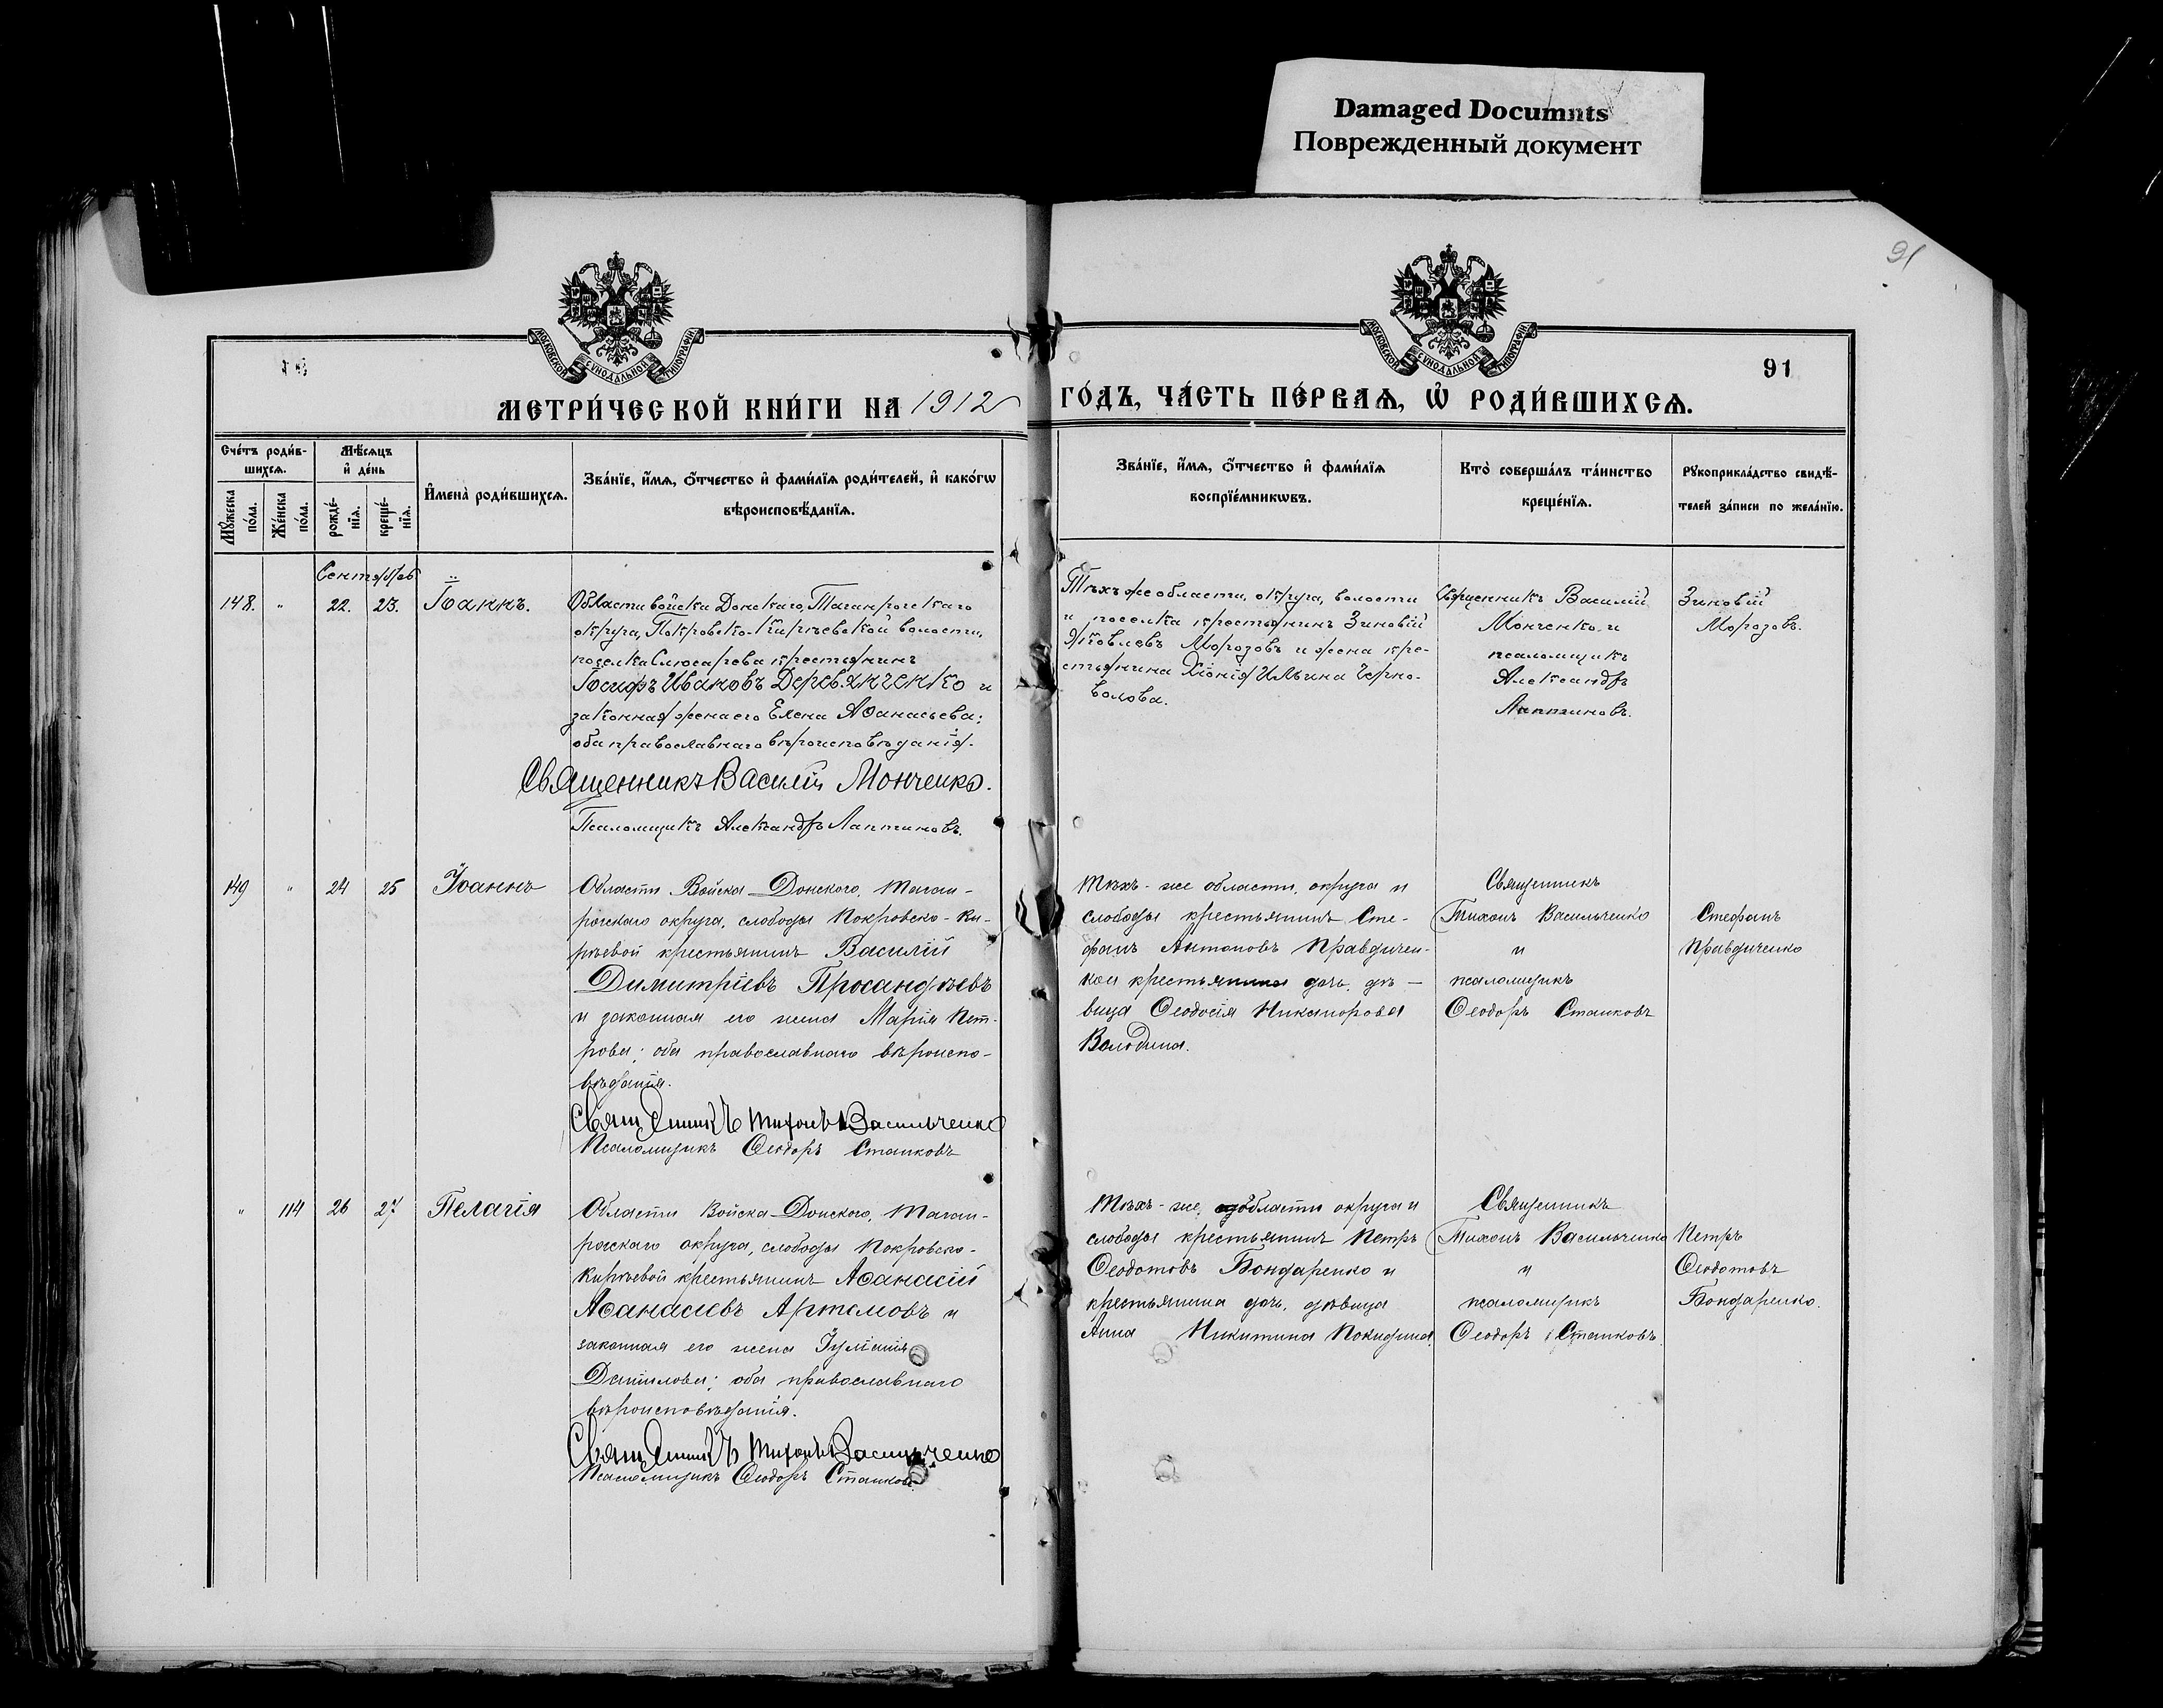 Damaged Documnts
Поврежденный документ
91
МОСКОВСКОЙ СѴНОДАЛЬНОЙ ТИПОГРАФІИ
МОСКОВСКОЙ СѴНОДАЛЬНОЙ ТИПОГРАФІИ
91
МЕТРИ́ЧЕСКОЙ КНИ́ГИ НА 1912 ГО́ДЪ, ЧА́СТЬ ПЕ́РВАѦ, Ѡ҆ РОДИ́ВШИХСѦ.
Сче́тъ роди́в-
шихсѧ.
Мꙋ́жеска по́ла.
Же́нска по́ла.
Мѣ́сѧцъ
и҆ де́нь
рожде́-
нїѧ.
креще́-
нїѧ.
И҆мена̀ роди́вшихсѧ.
Зва́нїе, и҆́мѧ, ѻ҆́тчество и҆ фами́лїѧ роди́телей, и҆ како́гѡ
вѣроисповѣ́данїѧ.
Зва́нїе, и҆́мѧ, ѻ҆́тчество и҆ фами́лїѧ
воспрїе́мникѡвъ.
Кто̀ соверша́лъ та́инство
креще́нїѧ.
Рꙋкоприкла́дство свидѣ́-
телей за́писи по жела́нїю.
Сентябрь
148.
"
22.
23.
Іоаннъ.
Области войска Донскаго, Таганрогскаго
округа, Покровско-Кирѣевской волости,
поселка Слюсарева крестьянинъ
Іосифъ Ивановъ Деревянченко и
законная жена его Елена Аѳанасьева;
оба православнаго вѣроисповѣданія.
Священникъ Василій Монченко.
Псаломщикъ Александръ Лаптиновъ.
Тѣхъ же области, округа, волости
и поселка крестьянинъ Зиновій
Яковлевъ Морозовъ и жена кре-
стьянина Хіонія Ильина Черно-
волова.
Священникъ Василій
Монченко и
псаломщикъ
Александръ
Лаптиновъ.
Зиновій
Морозовъ.
149
"
24
25
Іоаннъ
Области Войска Донского, Таган-
рогскаго округа, слободы Покровско-Ки-
рѣевой крестьянинъ Василій
Димитріевъ Просандѣевъ
и законная его жена Марія Пет-
рова; оба православнаго вѣроиспо-
вѣданія.
Священникъ Тихонъ Васильченко
Псаломщикъ Ѳеодоръ Станковъ
Тѣхъ-же области, округа и
слободы крестьянинъ Сте-
фанъ Антоновъ Правдичен-
ко и крестьянина дочь, дѣ-
вица Ѳеодосія Никанорова
Володина.
Священникъ
Тихонъ Васильченко
и
псаломщикъ
Ѳеодоръ Станковъ
Стефанъ
Правдиченко
"
114
26
27
Пелагія
Области Войска Донского, Таган-
рогскаго округа, слободы Покровско-
Кирѣевой крестьянинъ Аѳанасій
Аѳанасіевъ Артемовъ и
законная его жена Іуліанія
Данилова; оба православнаго
вѣроисповѣданія.
Священникъ Тихонъ Васильченко
Псаломщикъ Ѳеодоръ Станковъ
Тѣхъ-же, области округа и
слободы крестьянинъ Петръ
Ѳеодотовъ Бондаренко и
крестьянина дочь, дѣвица
Анна Никитина Покидина.
Священникъ
Тихонъ Васильченко
и
псаломщикъ
Ѳеодоръ Станковъ.
Петръ
Ѳеодотовъ
Бондаренко.